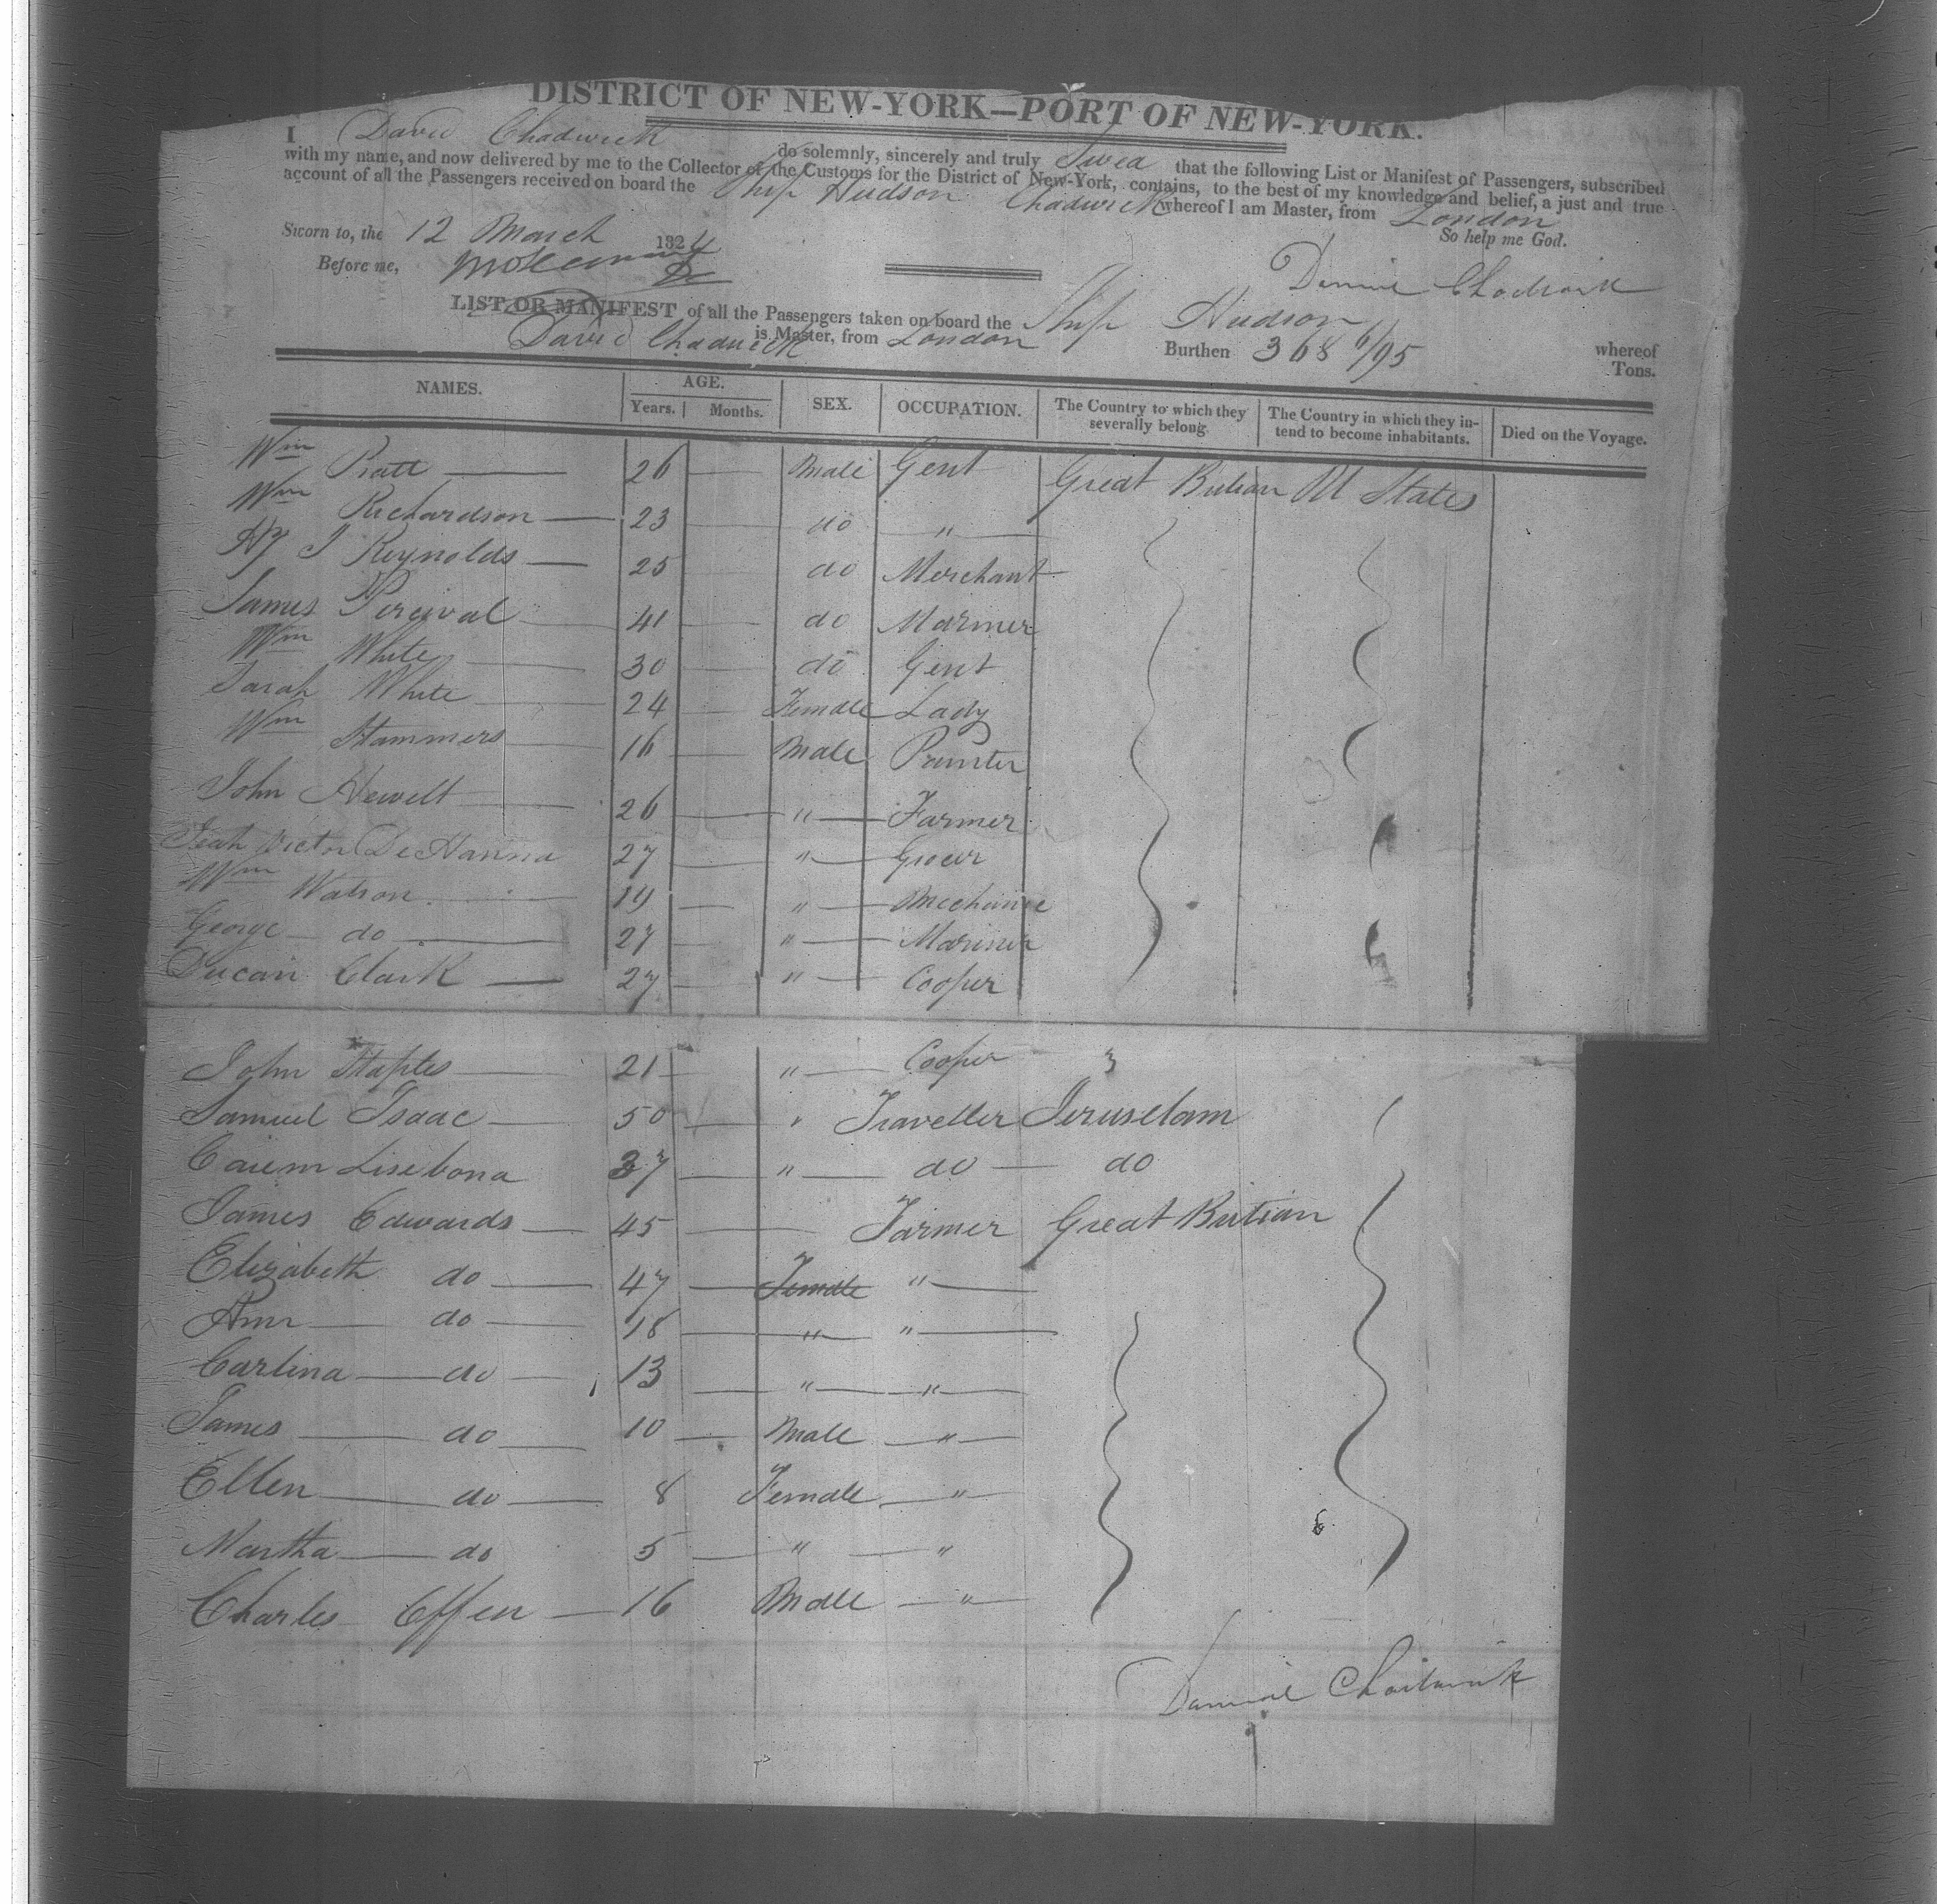 DISTRICT OF NEW-YORK—PORT OF NEW-YORK.
I David Chadwick do solemnly, sincerely and truly Swea that the following List or Manifest of Passengers, subscribed
with my name, and now delivered by me to the Collector of the Customs for the District of New-York, contains, to the best of my knowledge and belief, a just and true
account of all the Passengers received on board the Ship Hudson Chadwick whereof I am Master, from London
Sworn to, the 12 March 1824 So help me God.
Before me,
Chadwick
LIST OR MANIFEST of all the Passengers taken on board the Ship Hudson whereof
David Chadwick is Master, from London Burthen 368 6/95 Tons.
NAMES. AGE. Years. Months. SEX. OCCUPATION. The Country to which they severally belong. The Country in which they intend to become inhabitants. Died on the Voyage.
Wm Pratt 26 Male Gent Great Britian U States
Wm Richardson 23 do "
Hy J Reynolds 25 do Merchant
James Percival 41 do Marmer
Wm White 30 do Gent
Sarah White 24 Female Lady
Wm Stammers 16 Male Painter
John Hewelt 26 " Farmer
Victor De Hanna 27 " Grocer
Wm Watson 19 " Mechanic
George do 27 " Mariner
Ducan Clark 27 " Cooper
John Staples 21 " Cooper
Samuel Isaac 50 " Traveller Jeruselam
Caiem Lisebona 37 " do do
James Edwards 45 Farmer Great Britian
Elizabeth do 47 Female "
Ann do 18 " "
Carlina do 13 " "
James do 10 Male "
Ellen do 8 Female "
Martha do 5 " "
Charles Effen 16 Male "
Daniel Chadwick